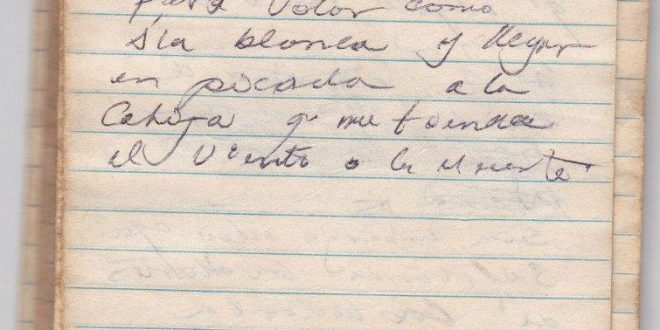 para volar como
ala blanca y llegar
en picada a la
Cobija q' me tienda
el viento o la muerte